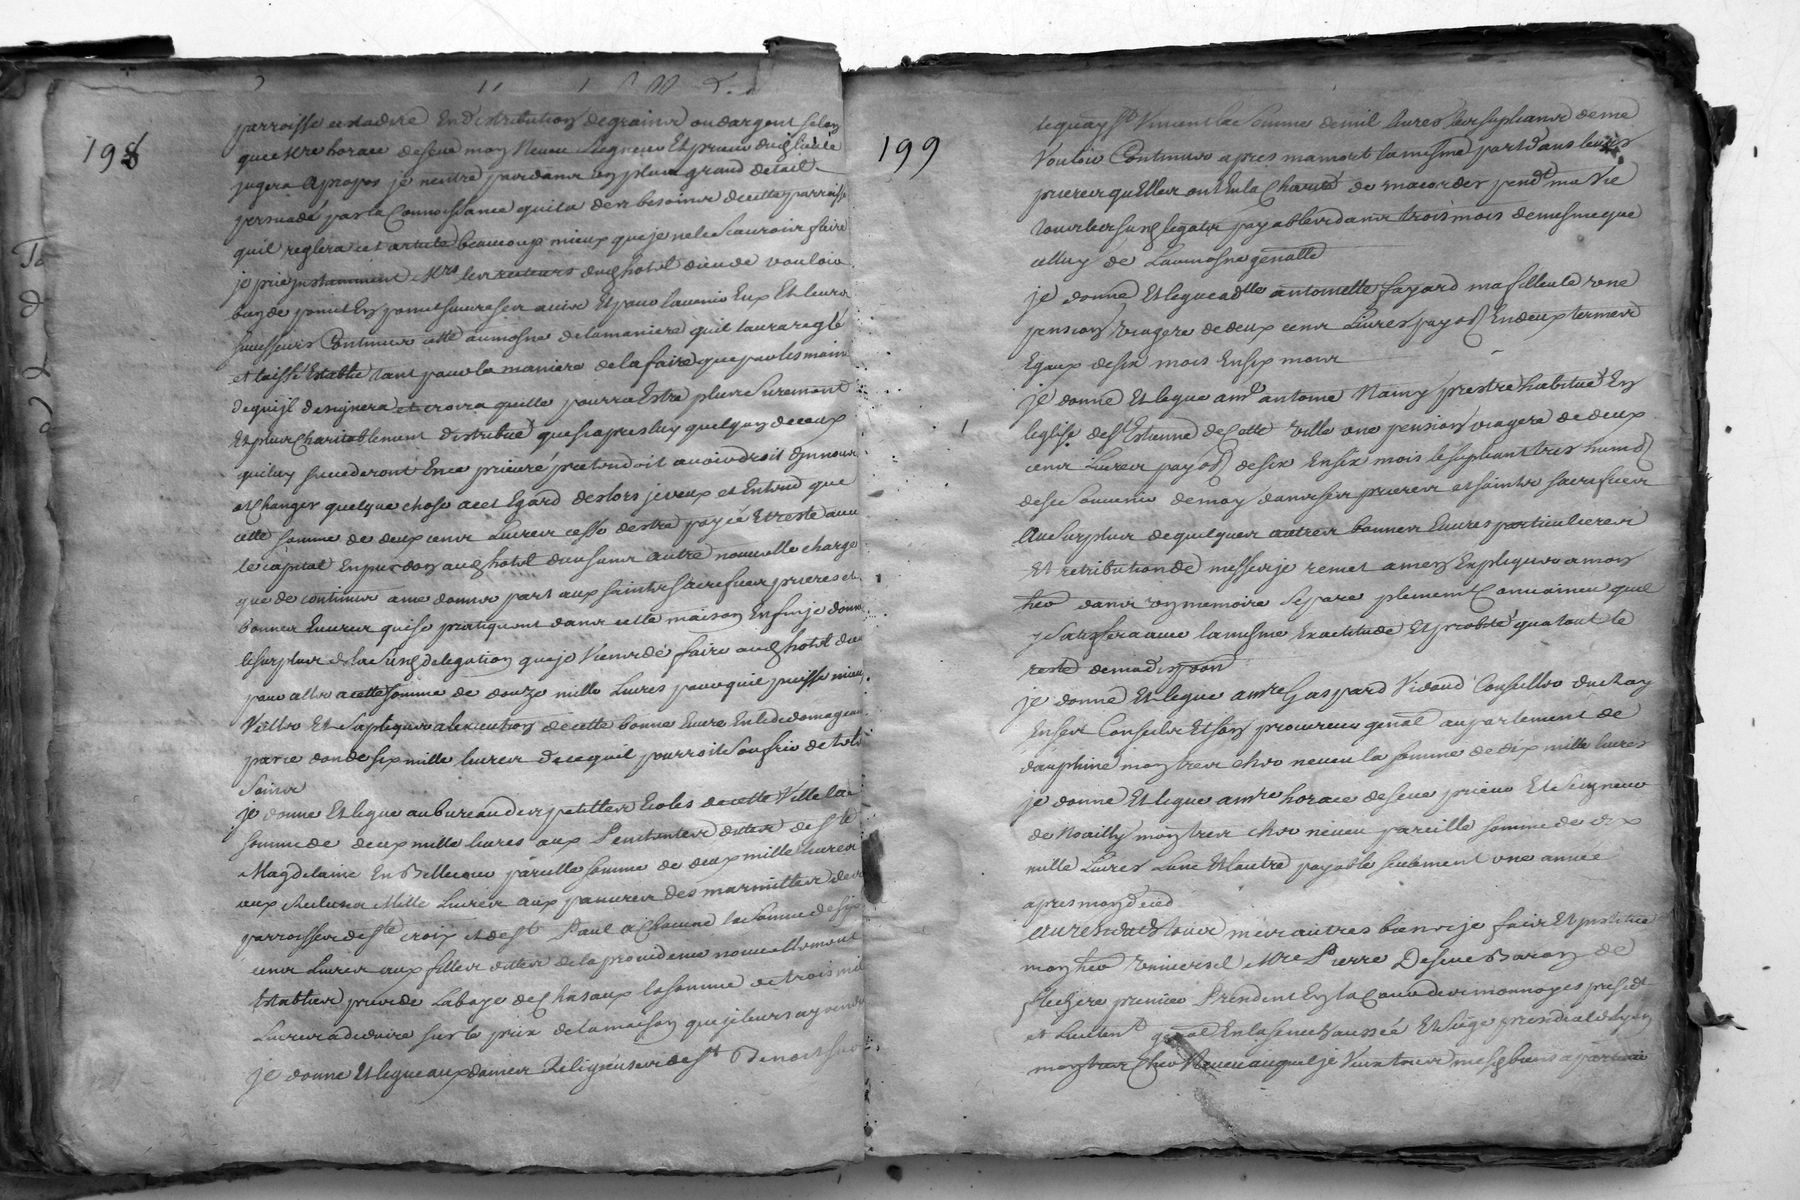 198
parroisse cestadire En distribution de grains ou dargent selon
que Mre horace deseve mon Neveu Seigneur Et prieur dud lieu le
jugera apropos je nentre pas dans un plus grand detail
persuadé par la Connoissance quil a des besoins de cette parroisse
quil reglera cet article beaucoup mieux que je ne le scaurois faire
je prie instamment Mrs les recteurs dud hotel dieu de vouloir
suivre ses avis Et pour lavenir Eux Et leurs
successeurs Continuer cette aumosne de la maniere quil laura reglé
et laissé Establie tant pour la maniere de la faire que par les mains
de qui il designera et croira quelle pourra Estre plus surement
Et plus Charitablement distribué que si apres luy quelquun de ceux
qui luy succederont En ce prieuré pretendoit avoir droit dinnover
et Changer quelque chose a cet Egard des lors je veux et Entend que
cette somme de deux cens Livres cesse destre payée Et reste avec
le capital En pur don aud hotel dieu sans autre nouvelle charge
que de continuer a me donner part aux saints sacrifices prieres et
bonnes Euvres qui se pratiquent dans cette maison Enfin je donne
le surplus de la susd delegation que je Viens de faire aud hotel dieu
pour aller a cette somme de douze mille Livres pour quil puisse mieux
Veiller Et sapliquer a lexecution de cette bonne Euvre En le dedomageant
par ce don de six mille livres de ce quil pourroit soufrir de tels
soins
je donne Et legue au bureau des petittes Ecoles de cette Ville la
somme de deux mille livres aux Penitentes dittes de Ste
Magdelaine En Bellecour pareille somme de deux mille livres
aux Recluses Mille Livres aux pauvres des marmittes des
parroisses de Ste croix et de St Paul a Chacune la somme de six
cens Livres aux filles dittes de la providence nouvellement
Establies pres de Labaye de Chazaux la somme de trois mil
Livres a deduire sur le prix de la maison que je leurs ay vendu
je donne Et legue aux dames Religieuses de St Benoist sur
199
le quay St Vincent la somme de mil livres les supliant de me
Vouloir Continuer apres ma mort la mesme part dans leurs
prieres quElles ont Eu la Charité de macorder pendt ma vie
tous les susd legats payables dans trois mois de mesme que
celluy de Laumosne genalle
je donne Et legue a dlle antoinette fayard ma filleule une
pension viagere de deux cens Livres payable En deux termes
Egaux de six mois En six mois
je donne Et legue a mr antoine Namy prestre habitué En
leglise de St Estienne de Cette Ville une pension viagere de deux
cens Livres payable de six En six mois le supliant tres humbt
de se souvenir de moy dans ses prieres et saints sacrifices
Au surplus de quelques autres bonnes Euvres particulieres
Et retribution de messes je remet a men Expliquer a mon
her dans un memoire separé plenement Convaincu quil
y satisfera avec la mesme Exactitude Et probité qua tout le
reste de ma dispon
je donne Et legue a mre Gaspard Vidaud Conseiller du Roy
En ses Conseils Et son procureur genal au parlement de
dauphiné mon tres cher neveu la somme de dix mille livres
je donne Et legue a mre horace deseve prieur Et Seigneur
de Noailly mon tres cher neveu pareille somme de dix
mille Livres Lune Et lautre payable seulement une année
apres mon deced
Au residu de tous mes autres biens je fais Et institue
mon her Universel Mre Pierre Deseve Baron de
flechere premier President En la Cour des monnoyes presidt
et Lieutent genal En la senechaussée Et siege presidial de Lyon
mon tres Cher Neveu auquel je Veux tous mesd biens apartenir